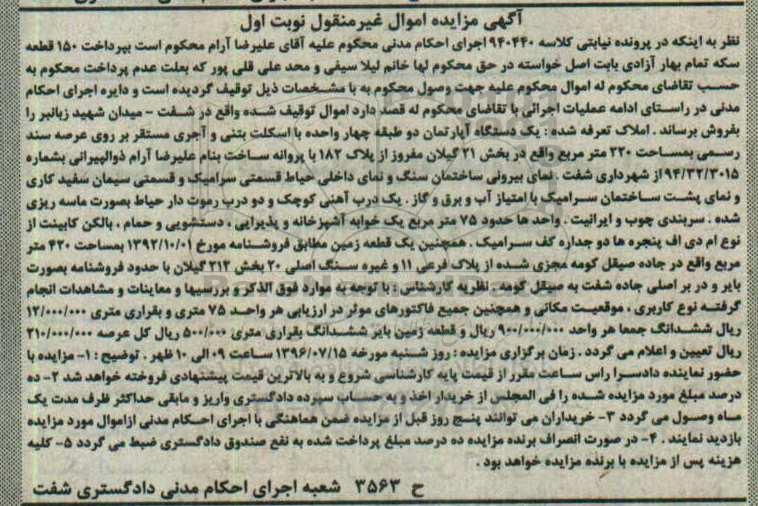 آگهی مزایده اموال غیرمنقول نوبت اول
نظر به اینکه در پرونده نیابتی کلاسه ۹۴۰۴۴۰ اجرای احکام مدنی محکوم علیه آقای علیرضا آرام محکوم است بپرداخت ۱۵۰ قطعه
سکه تمام بهار آزادی بابت اصل خواسته در حق محکوم لها خانم لیلا سیفی و محد علی قلی پور که بعلت عدم پرداخت محکوم به
حسب تقاضای محکوم له اموال محکوم علیه جهت وصول محکوم به با مشخصات ذیل توقیف گردیده است و دایره اجرای احکام
مدنی در راستای ادامه عملیات اجرائی با تقاضای محکوم له قصد دارد اموال توقیف شده واقع در شفت - میدان شهید زبانبر را
بفروش برساند . املاک تعرفه شده : یک دستگاه آپارتمان دو طبقه چهار واحده با اسکلت بتنی و آجری مستقر بر روی عرصه سند
رسمی بمساحت ۲۲۰ متر مربع واقع در بخش ۲۱ گیلان مفروز از پلاک ۱۸۲ با پروانه ساخت بنام علیرضا آرام ذوالپیرانی بشماره
۹۴/۳۲/۳۰۱۵ از شهرداری شفت . نمای بیرونی ساختمان سنگ و نمای داخلی حیاط قسمتی سرامیک و قسمتی سیمان سفید کاری
و نمای پشت ساختمان سرامیک با امتیاز آب و برق و گاز . یک درب آهنی کوچک و دو درب رموت دار حیاط بصورت ماسه ریزی
شده . سربندی چوب و ایرانیت . واحد ها حدود ۷۵ متر مربع یک خوابه آشپزخانه و پذیرایی ، دستشویی و حمام ، بالکن کابینت از
نوع ام دی اف پنجره ها دو جداره کف سرامیک . همچنین یک قطعه زمین مطابق فروشنامه مورخ ۱۳۹۲/۱۰/۰۱ بمساحت ۴۲۰ متر
مربع واقع در جاده صیقل کومه مجزی شده از پلاک فرعی ۱۱ و غیره سنگ اصلی ۲۰ بخش ۲۱۲ گیلان با حدود فروشنامه بصورت
بایر و در بر اصلی جاده شفت به صیقل کومه . نظریه کارشناس : با توجه به موارد فوق الذکر و بررسیها و معاینات و مشاهدات انجام
گرفته نوع کاربری . موقعیت مکانی و همچنین جمیع فاکتورهای موثر در ارزیابی هر واحد ۷۵ متری و بقراری متری ۱۲/۰۰۰/۰۰۰
ریال ششدانگ جمعا هر واحد ۹۰۰/۰۰۰/۰۰۰ ریال و قطعه زمین بایر ششدانگ بقراری متری ۵۰۰/۰۰۰ ریال کل عرصه ۲۱۰/۰۰۰/۰۰۰
ریال تعیین و اعلام می گردد . زمان برگزاری مزایده : روز شنبه مورخه ۱۳۹۶/۰۷/۱۵ ساعت ۰۹ الی ۱۰ ظهر . توضیح : ۱- مزایده با
حضور نماینده دادسرا راس ساعت مقرر از قیمت پایه کارشناسی شروع و به بالاترین قیمت پیشنهادی فروخته خواهد شد ۲- ده
درصد مبلغ مورد مزایده شده را فی المجلس از خریدار اخذ و به حساب سپرده دادگستری واریز و مابقی حداکثر ظرف مدت یک
ماه وصول می گردد ۳- خریداران می توانند پنج روز قبل از مزایده ضمن هماهنگی با اجرای احکام مدنی ازاموال مورد مزایده
بازدید نمایند . ۴- در صورت انصراف برنده مزایده ده درصد مبلغ پرداخت شده به نفع صندوق دادگستری ضبط می گردد ۵- کلیه
هزینه پس از مزایده با برنده مزایده خواهد بود .
ح ۳۵۶۳ شعبه اجرای احکام مدنی دادگستری شفت